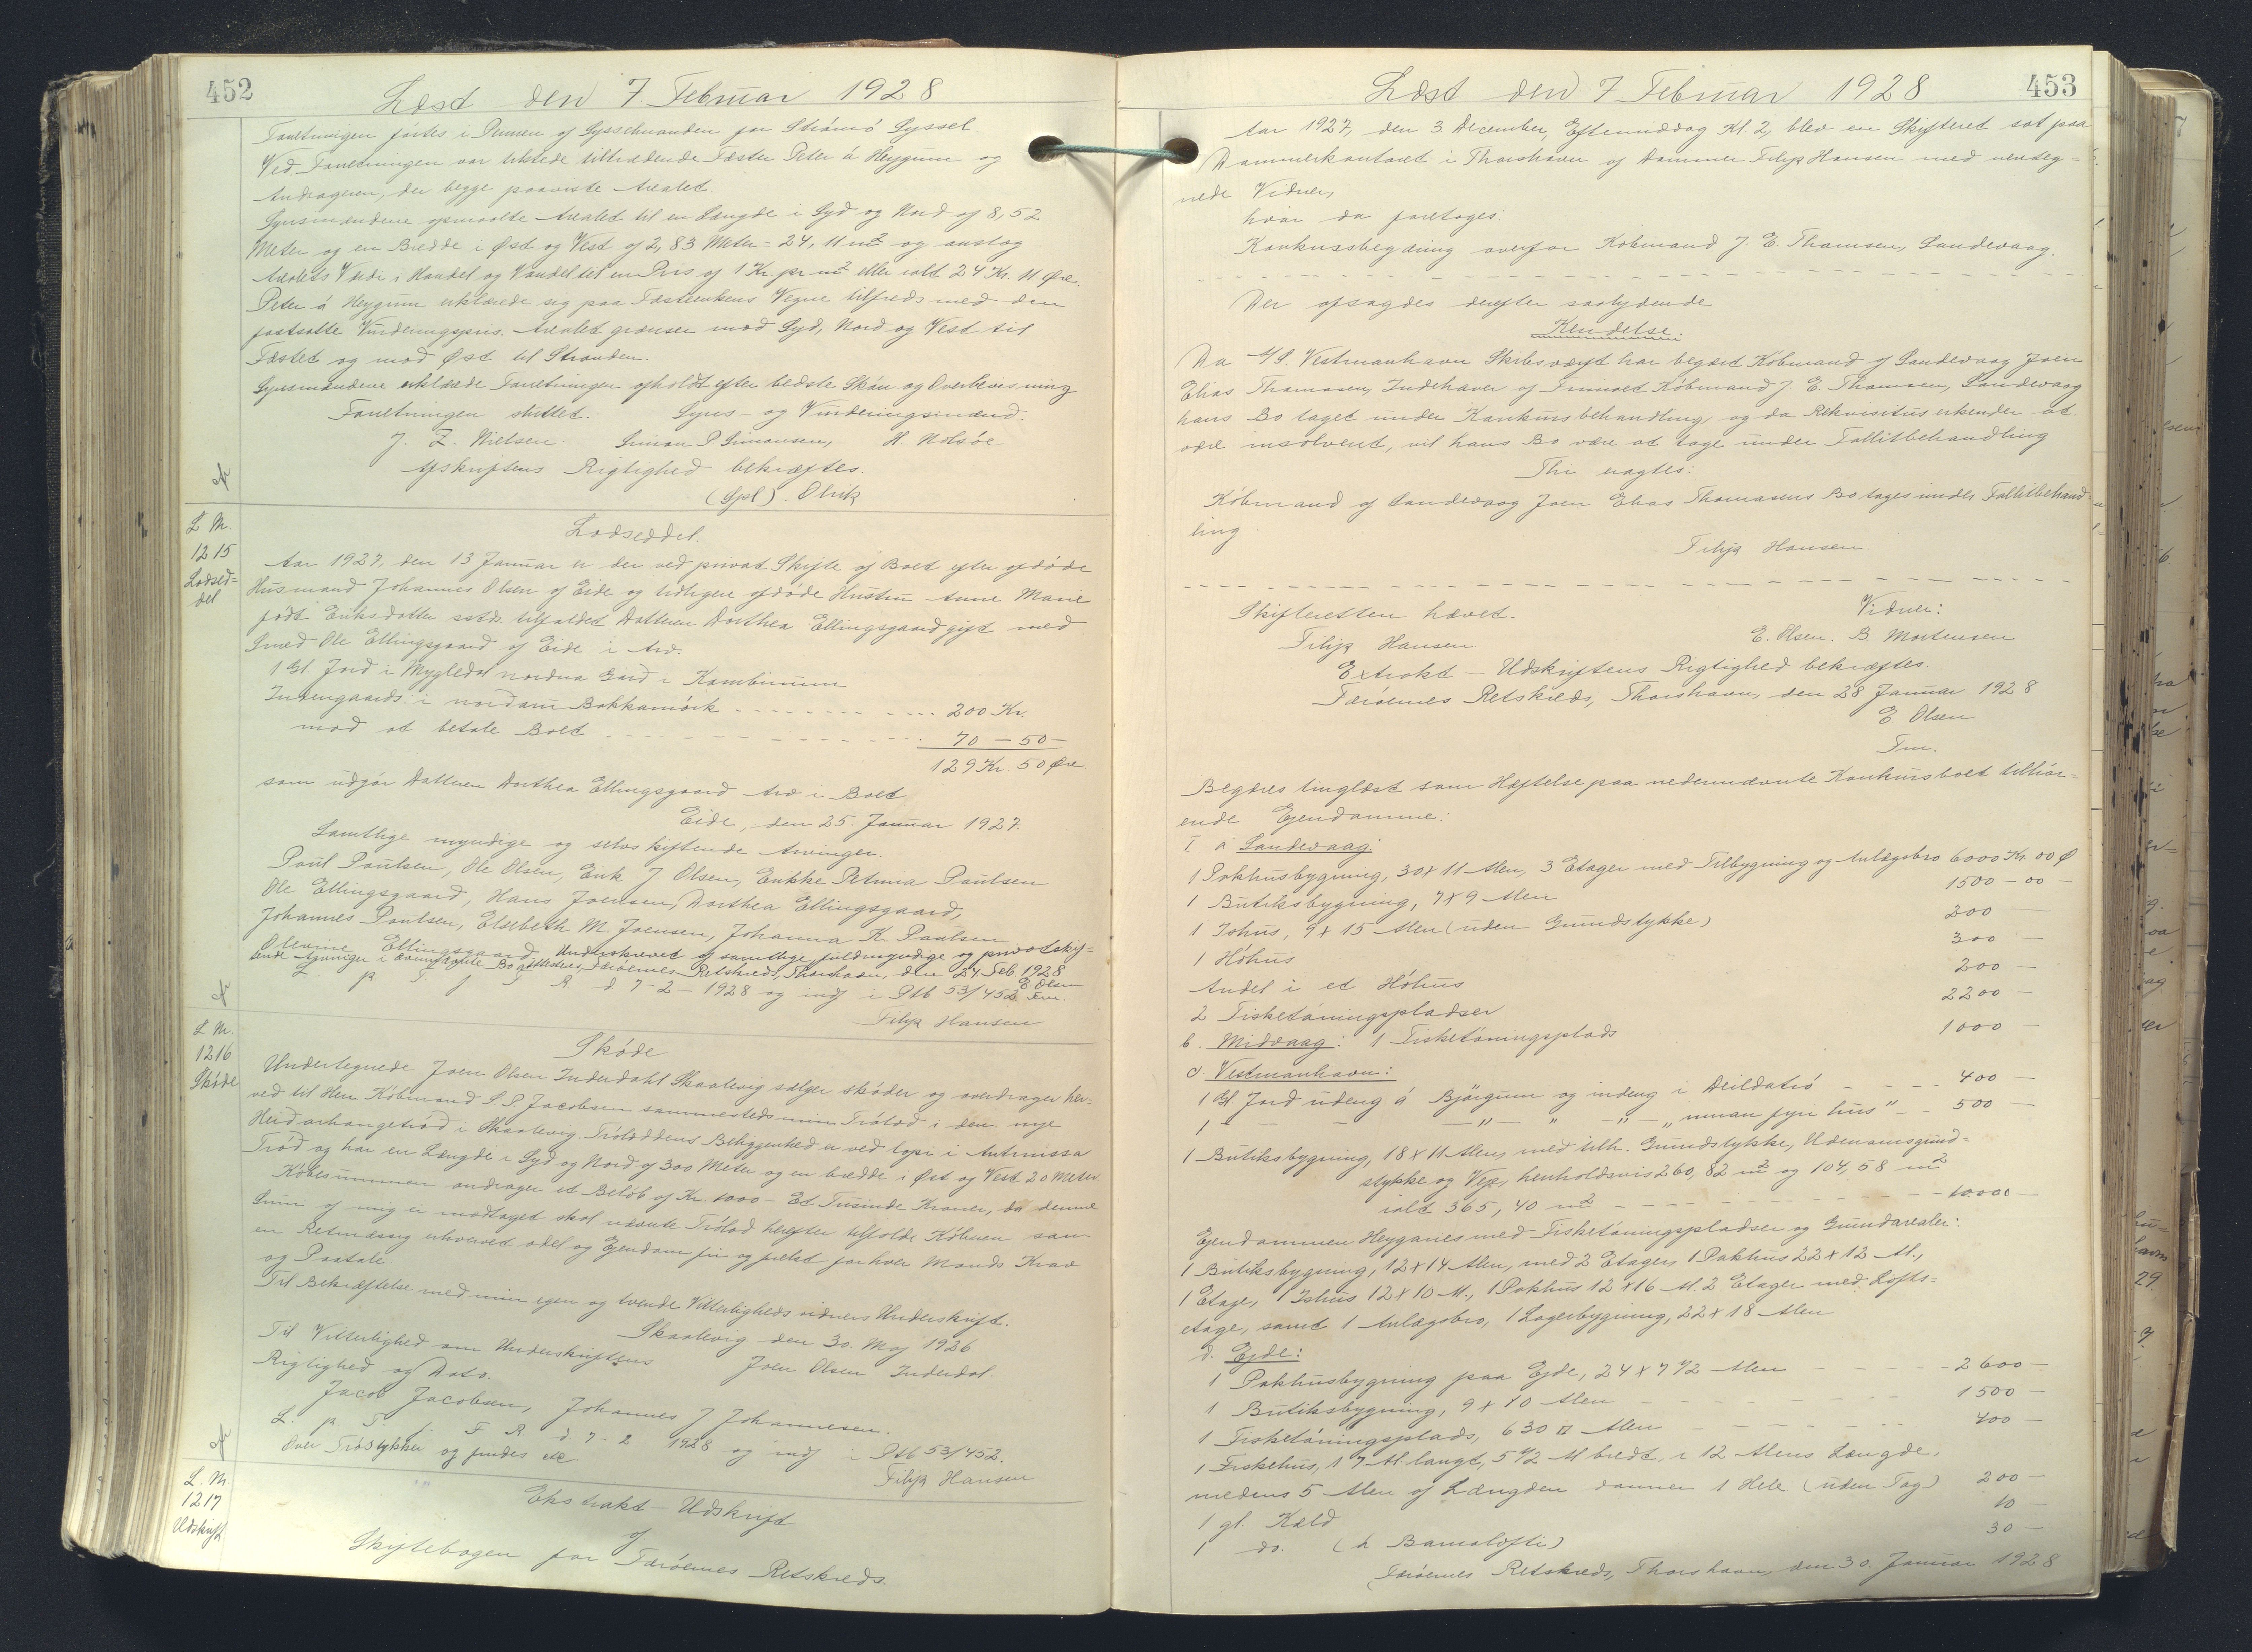 452
Læst den 7. Februar 1928
Forretningen førtes i Pennen af Sysselmanden for Strømø Syssel.
Ved Forretningen var tilstede tiltrædende Fæster Peter á Heygum og
Andrageren, der begge paaviste Arealet.
Synsmændene opmaalte Arealet til en Længde i Syd og Nord af 8,52
Meter og en Bredde i Øst og Vest af 2,83 Meter = 24,11 m² og anslog
Arealets Værdi i Handel og Vandel til en Pris af 1 Kr. pr m² eller ialt 24 Kr. 11 Øre.
Peter á Heygum erklærede sig paa Fæsteenkens Vegne tilfreds med den
fastsatte Vurderingspris. Arealet grænser mod Syd, Nord og Vest til
Fæstet og mod Øst til Stranden.
Synsmændene erklærede Forretningen afholdt efter bedste Skøn og Overbevisning
Forretningen sluttet. Syns- og Vurderingsmænd.
J. Z. Nielsen. Simon P Simonsen, H Nolsøe
Afskriftens Rigtighed bekræftes.
(Spl). Olrik
L M.
1215
Lodsed=
del
Lodseddel.
Aar 1927, den 13 Januar er der ved privat Skifte af Boet efter afdøde
Husmand Johannes Olsen af Eide og tidligere afdøde Hustru Anne Marie
født Eriksdatter sstds. tilfaldet Datteren Dorthea Ellingsgaard gift med
Smed Ole Ellingsgaard af Eide i Arv.
1 Gl. Jord i Mygledal nordna Gard i Kambinum
Indengaards: i nordari Bakkamørk - - - - 200 Kr.
mod at betale Boet - - - - 70 - 50 -
129 Kr. 50 Øre
som udgør Datteren Dorthea Ellingsgaard Arv i Boet
Eide, den 25. Januar 1927.
Samtlige myndige og selvskiftende Arvinger.
Poul Poulsen, Ole Olsen, Erik J Olsen, Enkke Petrina Poulsen
Ole Ellingsgaard, Hans Joensen, Dorthea Ellingsgaard,
Johannes Poulsen, Elsebeth M. Joensen, Johanna K. Poulsen
Olevine Ellingsgaard. Underskrevet af samtlige fuldmyndige og privatskif=
tende Arvinger i Færøernes Retskreds, Thorshavn, den 24. Feb 1928
E Olsen
L p T f F R d 7-2-1928 og indf i Ptb 53/452. Fm.
Filip Hansen
L M.
1216
Skøde
Skøde
Undertegnede Joen Olsen Inderdahl Skaalevig sælger skøder og overdrager her-
ved til Herr Købmand S. P Jacobsen sammesteds min Trólod i den nye
Heidarhangatrød i Skaalevig. Tróloddens Beliggenhed er ved topi i Antinissa
Trød og har en Længde i Syd og Nord af 300 Meter og en bredde i Øst og Vest 20 Meter.
Købesummen andrager et Beløb af Kr. 1000 - Et Tusinde Kroner, da denne
Sum af mig er modtaget skal nævnte Trólod herefter tilfalde Køberen som
en Retmæssig erhvervet odel og Ejendom fri og frelst for hver Mands Krav
og Paatale.
Til Bekræftelse med min egen og tvende Vitterligheds vidners Underskrift.
Skaalevig den 30. Maj 1926.
Til Vitterlighed om Underskriftens Joen Olsen Inderdal.
Rigtighed og Dato.
Jacob Jacobsen, Johannes J Johannesen.
L. p T. f. F R d 7-2 1928 og indf i Ptb 53/452.
Over Trøstykker og findes ek
Filip Hansen
L. M.
1217
Udskrift
Ekstrakt - Udskrift
af
Skiftebogen for Færøernes Retskreds.
453
Læst den 7 Februar 1928
Aar 1927, den 3 December, Eftermiddag Kl. 2, blev en Skifteret sat paa
Dommerkontoret i Thorshavn af Dommer Filip Hansen med underteg=
nede Vidner,
hvor da foretoges:
Konkursbegæring overfor Købmand J. E. Thomsen, Sandevaag.
Der afsagdes derefter saalydende
Kendelse:
Da A/S Vestmanhavn Skibsværft har begæret Købmand af Sandevaag Joen
Elias Thomasen, Indehaver af Firmaet Købmand J. E. Thomsen, Sandevaag
hans Bo taget under Konkursbehandling og da Rekvisitus erkender at
være insolvent, vil hans Bo være at tage under Fallitbehandling
Thi eragtes:
Købmand af Sandevaag Joen Elias Thomasens Bo tages under Fallitbehand=
ling
Filip Hansen
Skifteretten hævet. Vidner:
Filip Hansen E. Olsen. B. Mortensen
Extrakt - Udskriftens Rigtighed bekræftes.
Færøernes Retskreds, Thorshavn, den 28 Januar 1928
E Olsen
Fm.
Begæres tinglæst som Hæftelse paa nedennævnte Konkursboet tilhør=
ende Ejendomme:
I a Sandevaag:
1 Pakhusbygning, 30 x 11 Alen, 3 Etager med Tilbygning og Anlægsbro 6000 Kr. 00 Ø
1 Butiksbygning, 7 x 9 Alen 1500 - 00 -
1 Ishus, 9 x 15 Alen (uden Grundstykke) 200 -
1 Høhus 300 -
Andel i et Høhus 200 -
2 Fisketørringspladser 2200 -
b. Midvaag: 1 Fisketørringsplads 1000 -
c. Vestmanhavn:
1 Gl. Jord udeng á Bjørgum og indeng i Deildatrø - - - 400 -
1 - - - „ - „ - „ - „innan fyri hús" - - 500 -
1 Butiksbygning, 18 x 11 Alen, med tilh. Grundstykke, Udenomsgrund=
stykke og Vej, henholdsvis 260,82 m² og 104,58 m²
ialt 365,40 m² - - - - 10.000 -
Ejendommen Heyganes med Fisketørringspladser og Grundarealer:
1 Butiksbygning, 12 x 14 Alen, med 2 Etager, 1 Pakhus 22 x 12 Al.,
1 Etage, 1 Ishus 12 x 10 Al., 1 Pakhus 12 x 16 Al. 2 Etager med Lofts=
etage, samt 1 Anlægsbro, 1 Lagerbygning, 22 x 18 Alen
d. Ejde:
1 Pakhusbygning paa Ejde, 24 x 7 1/2 Alen - - - 2600 -
1 Butiksbygning, 9 x 10 Alen - - - 1500 -
1 Fisketørringsplads, 630 □ Alen - - - 400 -
1 Fiskehus, 17 Al. langt, 5 1/2 Al bredt, i 12 Alens Længde,
medens 5 Alen af Længden danner 1 Hele (uden Tag) 200 -
1 gl. Kæld 10 -
1 do. (h Barnalofti) 30 -
Færøernes Retskreds, Thorshavn, den 30. Januar 1928